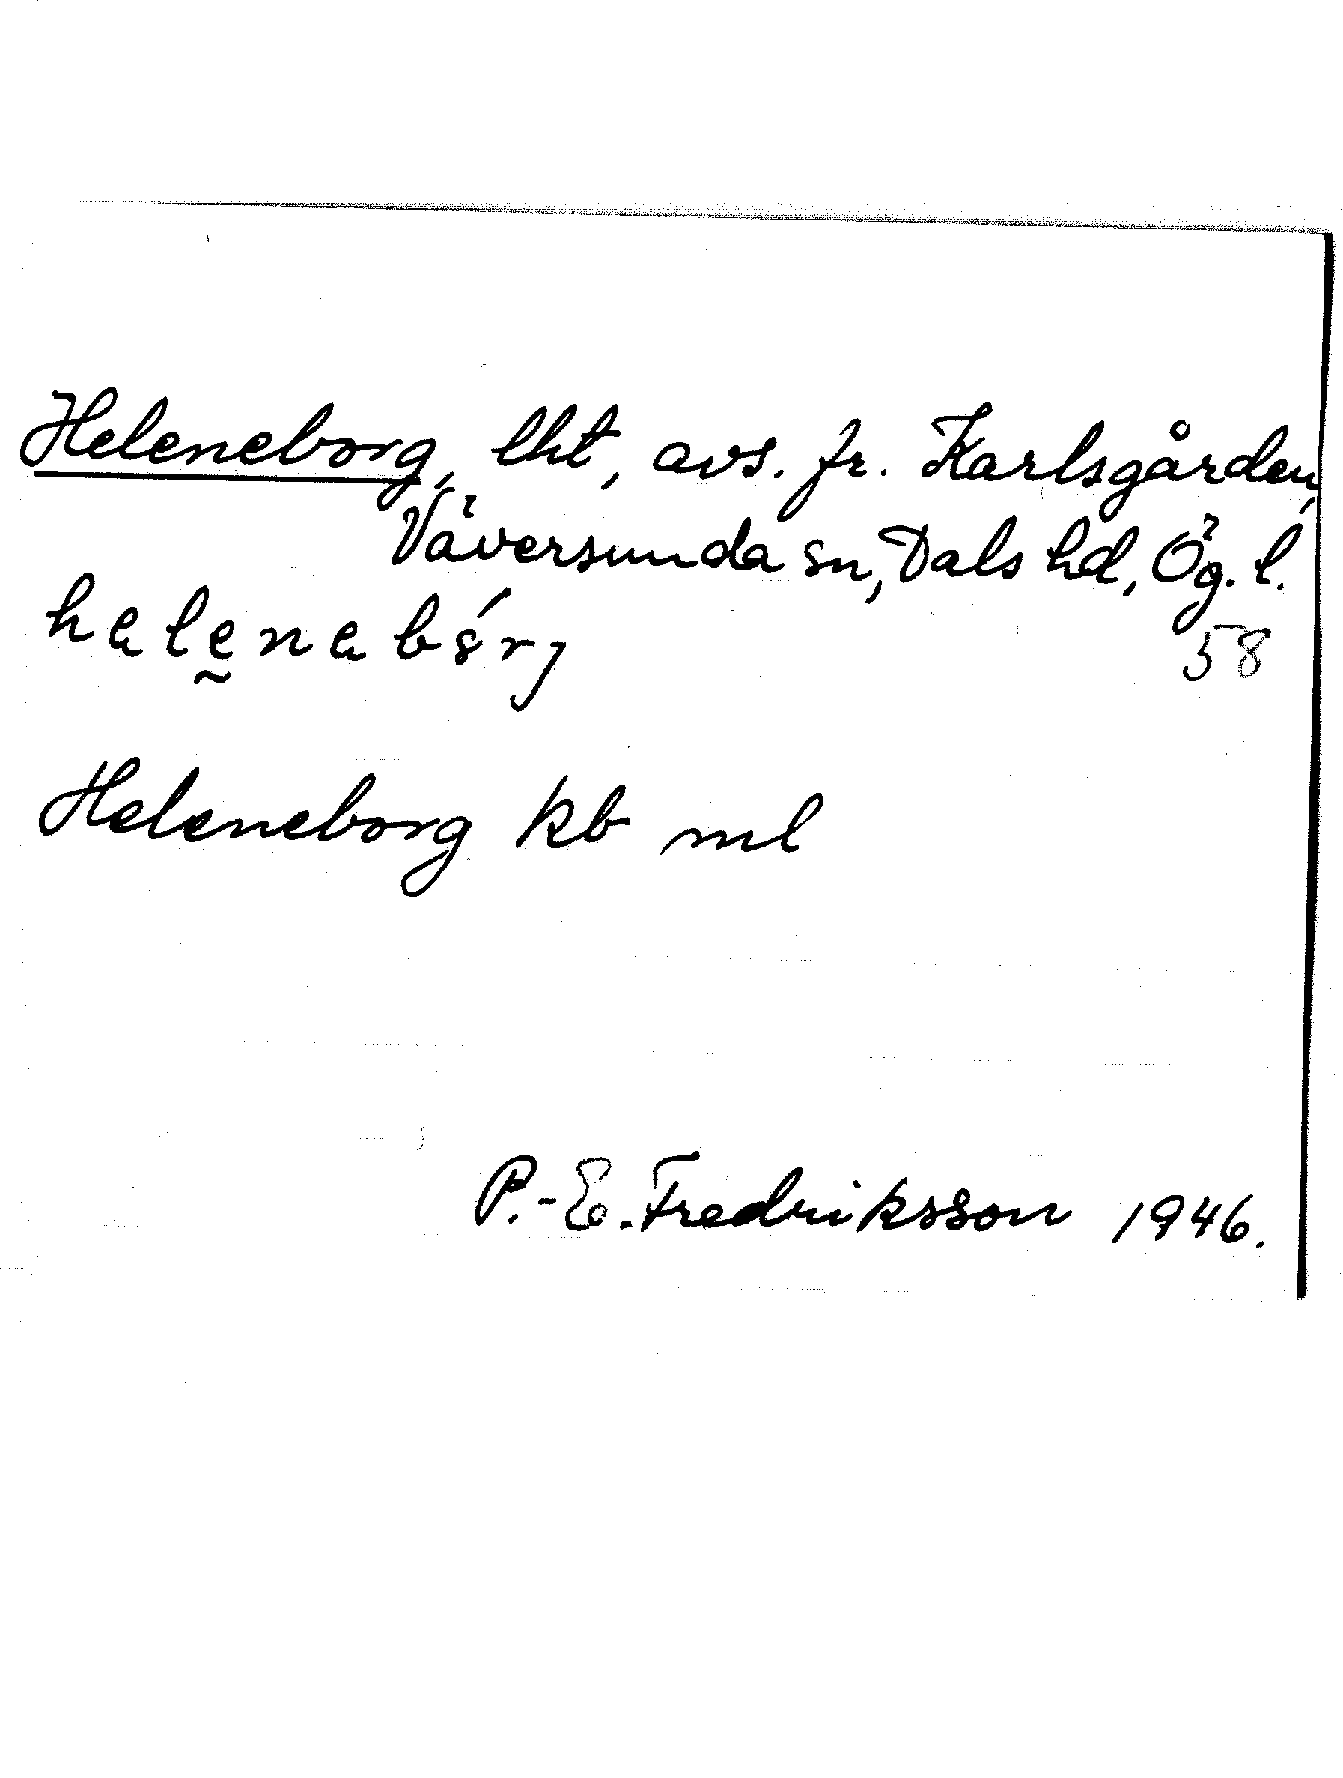 Heleneborg, lht, avs. fr. Karlsgården,
Väversunda sn, Dals hd, Ög. l.
58
Heleneborg kb ml
P.-E. Fredriksson 1946.